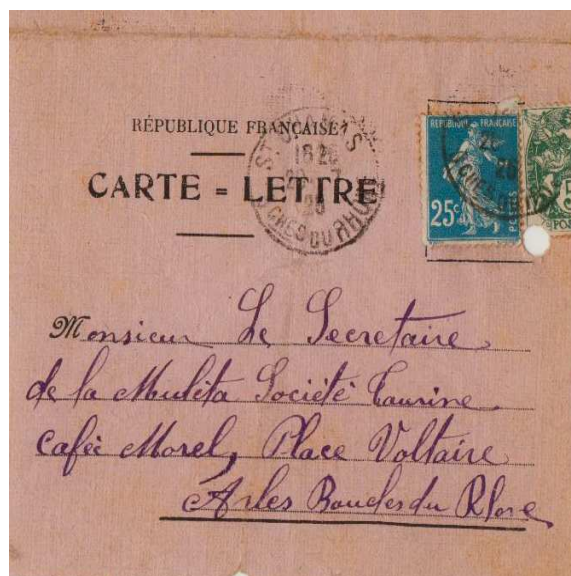 RÉPUBLIQUE FRANÇAISE
CARTE = LETTRE
RÉPUBLIQUE FRANÇAISE
25c
5
Monsieur Le Secretaire
de la Muleta Société Taurine
Cafèe Morel, Place Voltaire
Arles Bouches du Rhone